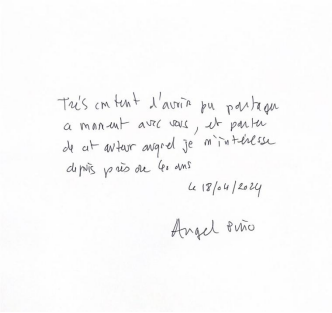 Très content d'avoir pu partager
ce moment avec vous, et parler
de cet auteur auquel je m'intéresse
depuis près de 40 ans
Le 18/04/2024
Angel Pino